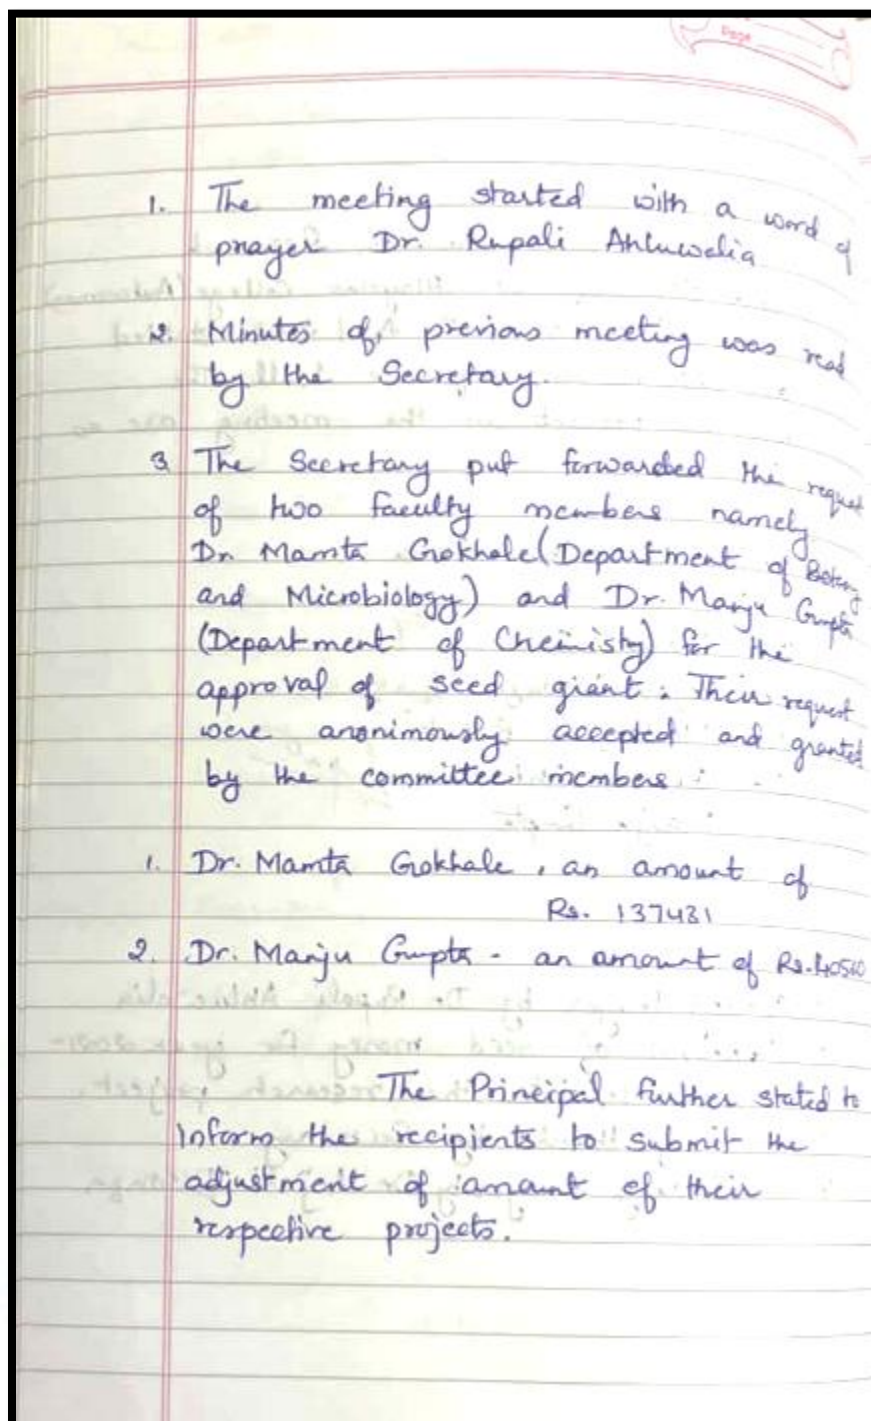 Page
1. The meeting started with a word of
prayer Dr. Rupali Ahluwalia
2. Minutes of previous meeting was read
by the Secretary.
3 The Secretary put forwarded the request
of two faculty members namely
Dr. Mamta Gokhale (Department of Botany
and Microbiology) and Dr. Manju Gupta
(Department of Chemistry) for the
approval of seed grant. Their request
were anonimously accepted and granted
by the committee members
1. Dr. Mamta Gokhale, an amount of
Rs. 137431
2. Dr. Manju Gupta - an amount of Rs.
The Principal further stated to
Inform the recipients to submit the
adjustment of amount of their
respective projects.